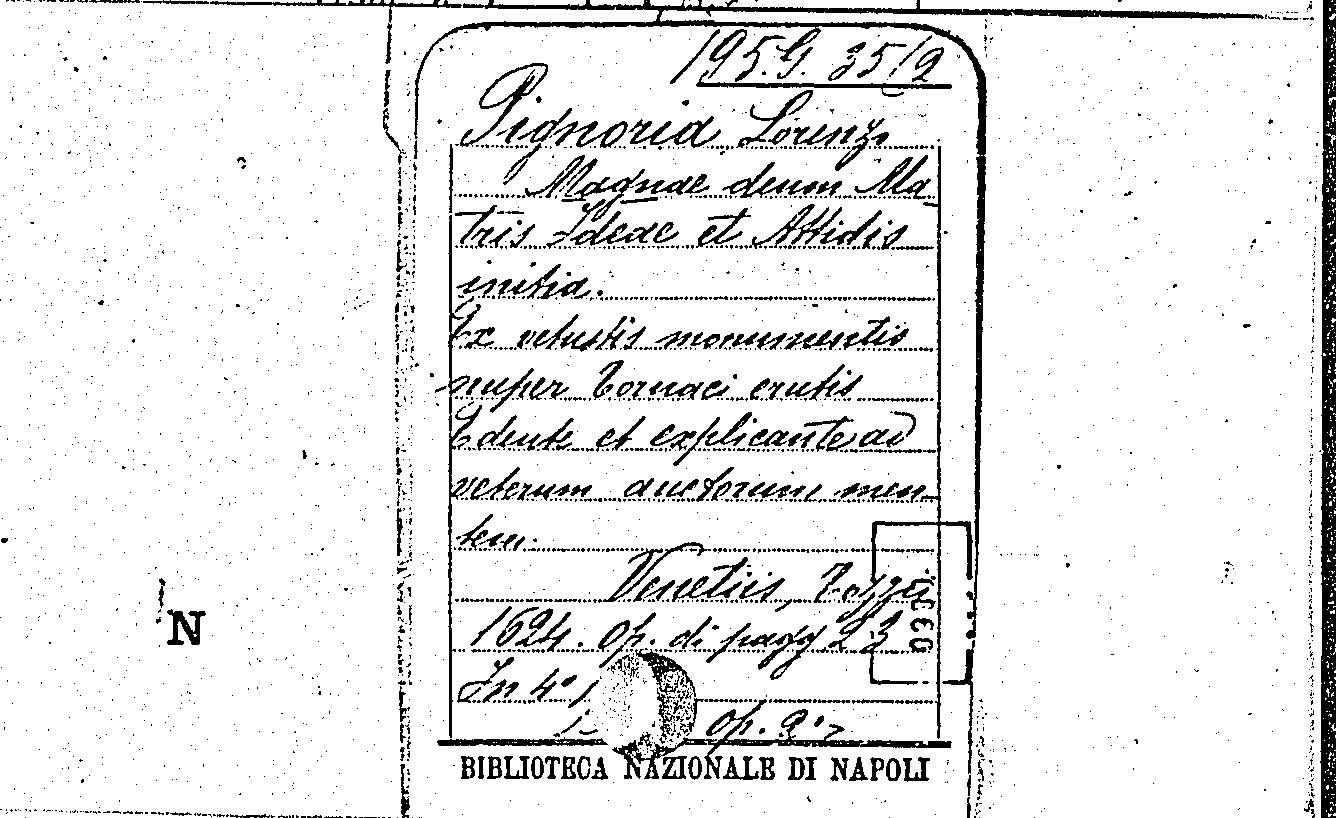 195.G. 35/2
Pignoria Lorenzo
Magnae deum Ma-
tris Ideae et Attidis
initia.
Ex vetustis monumentis
nuper Tornaci erutis
Edente et explicante ad
veterum auctorum men-
tem.
Venetiis, Tozzi
1624. Op. di pagg 23
In 4°
Op. 2°
033
BIBLIOTECA NAZIONALE DI NAPOLI
N